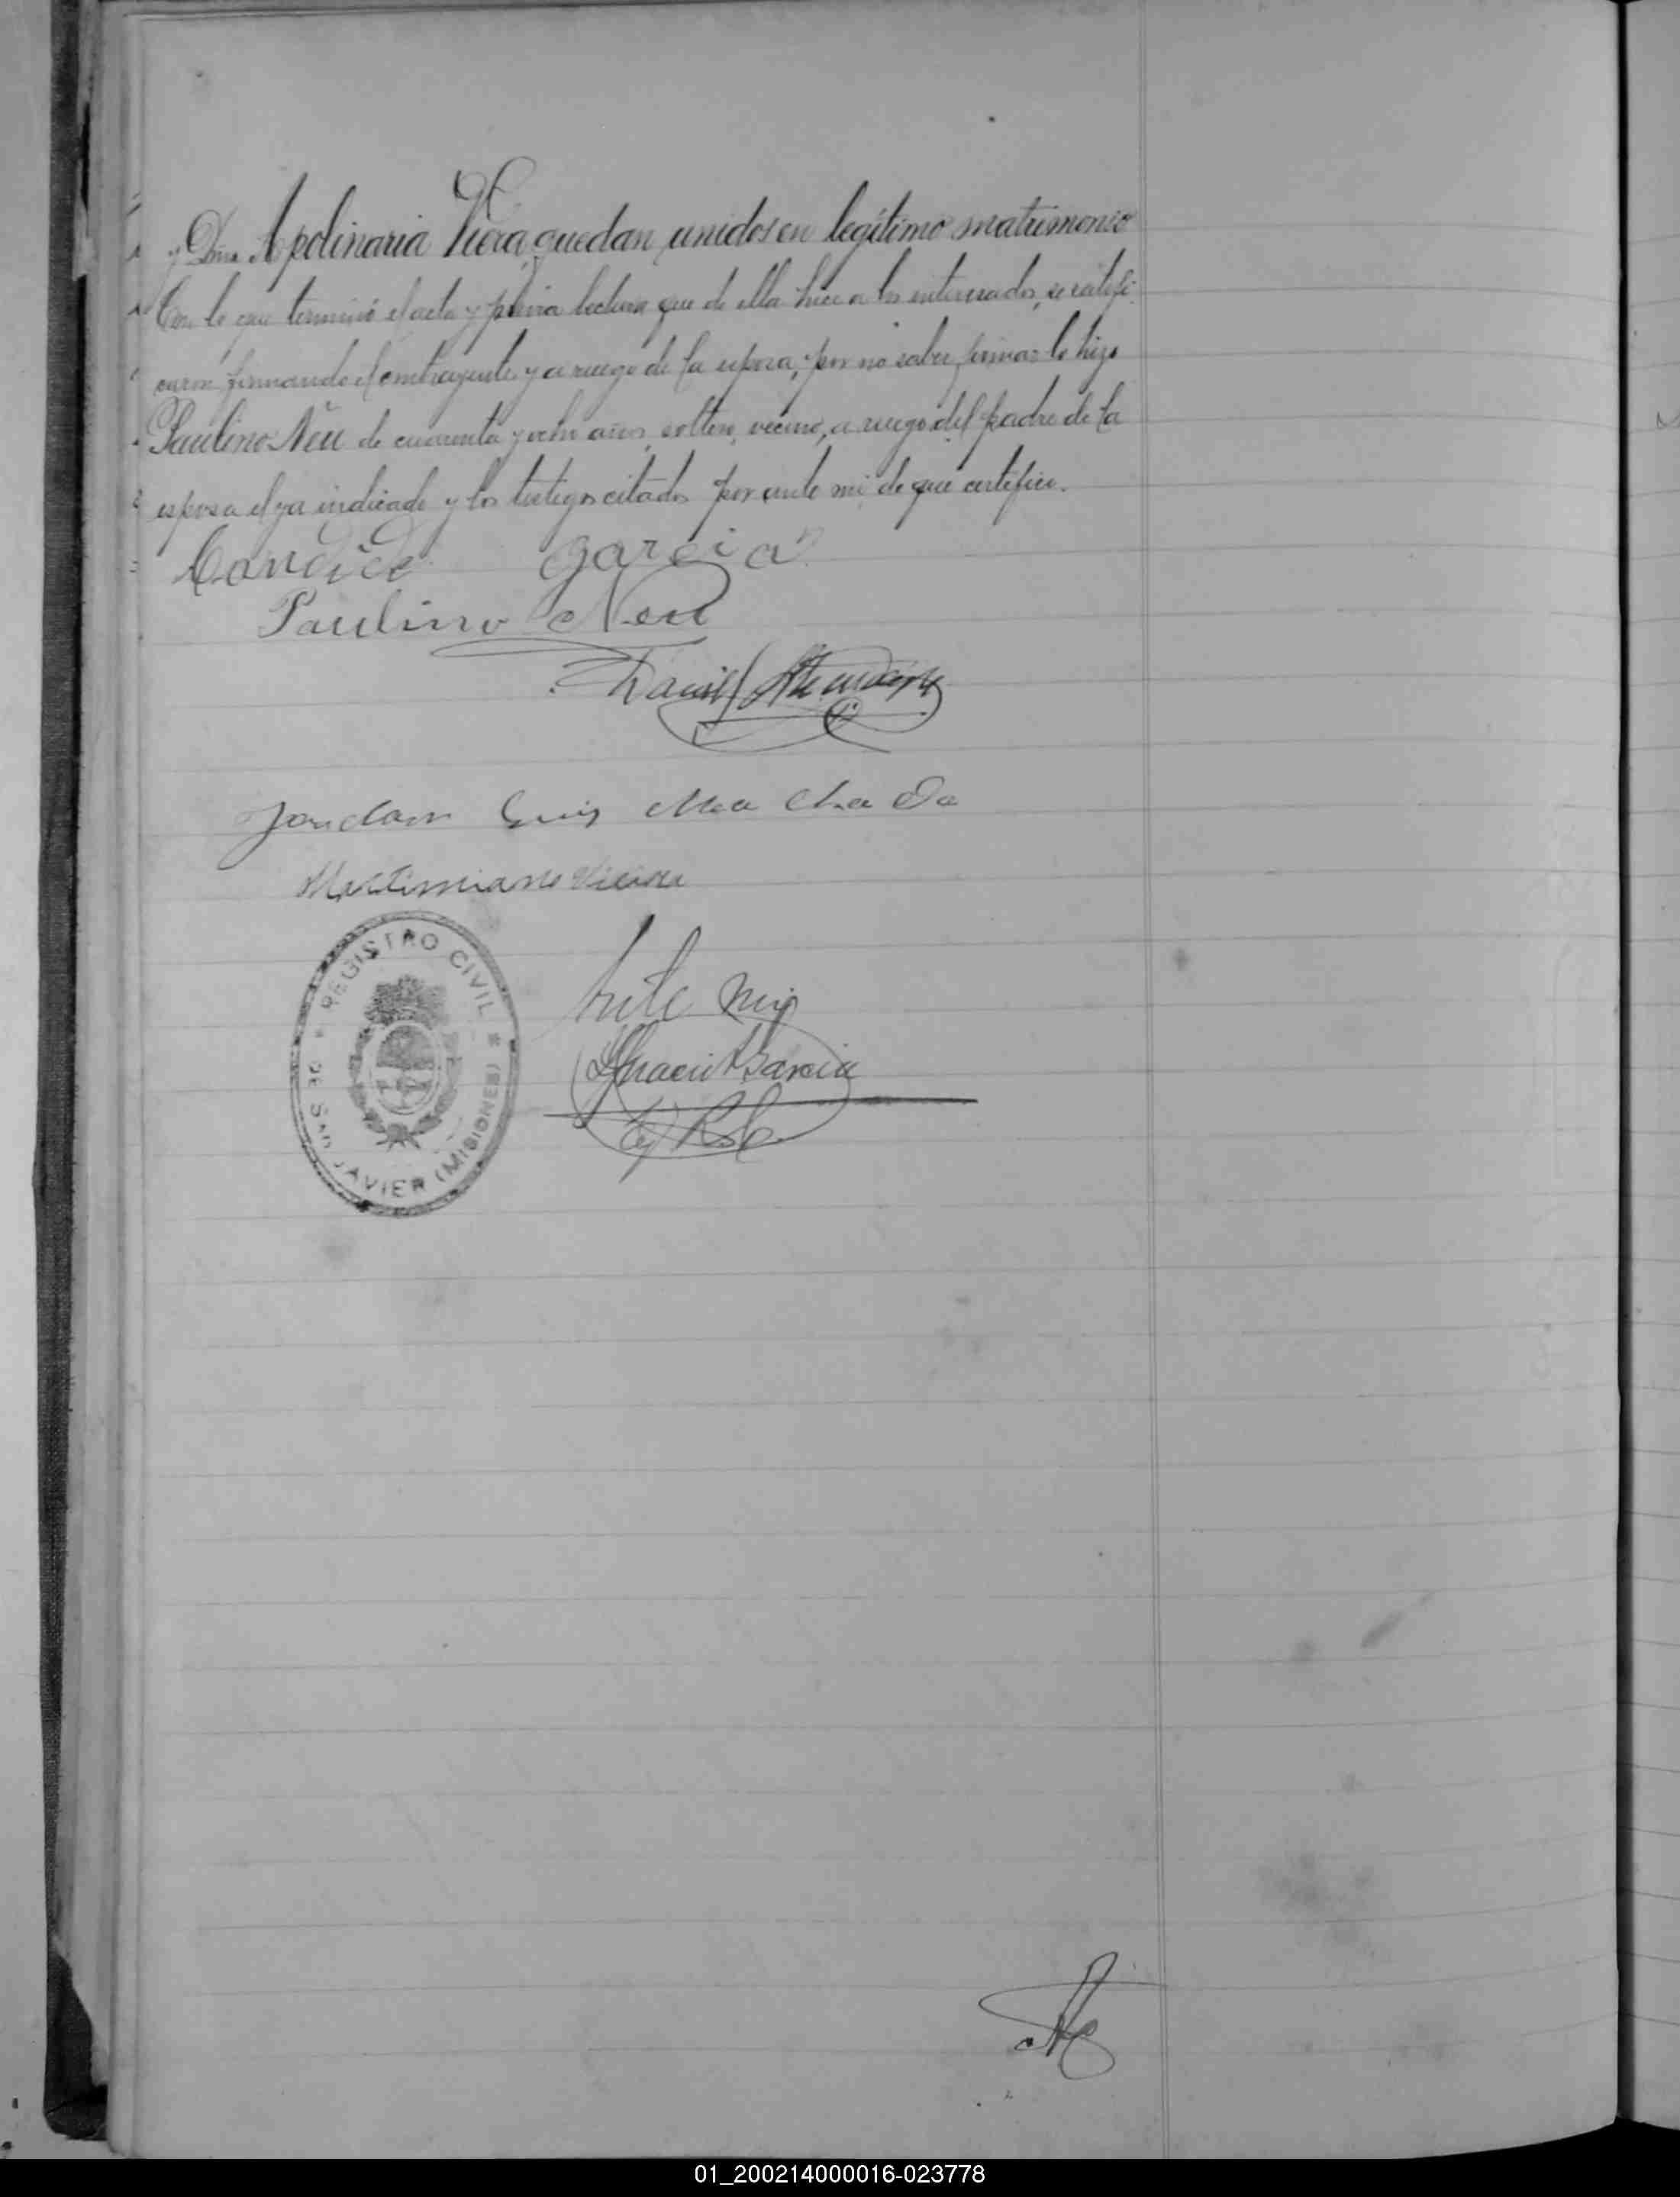 y Dña Apolinaria Viera, quedan unidos en legítimo matrimonio
Con lo que terminó el acta y prévia lectura que de ella hice a los interesados, se ratifi-
caron firmando el contrayente y a ruego de la esposa, por no saber firmar lo hizo
Paulino Neu de cuarenta y ocho años, soltero, vecino, a ruego del padre de la
esposa el ya indicado y los testigos citados por ante mi de que certifico.
Candido Garcia
Paulino Neu
Daniel
Jordam Luis Machado
Maximiano Vieira
REGISTRO CIVIL
DE SAN JAVIER (MISIONES)
Ante mi
Ignacio Garcia
01_200214000016-023778